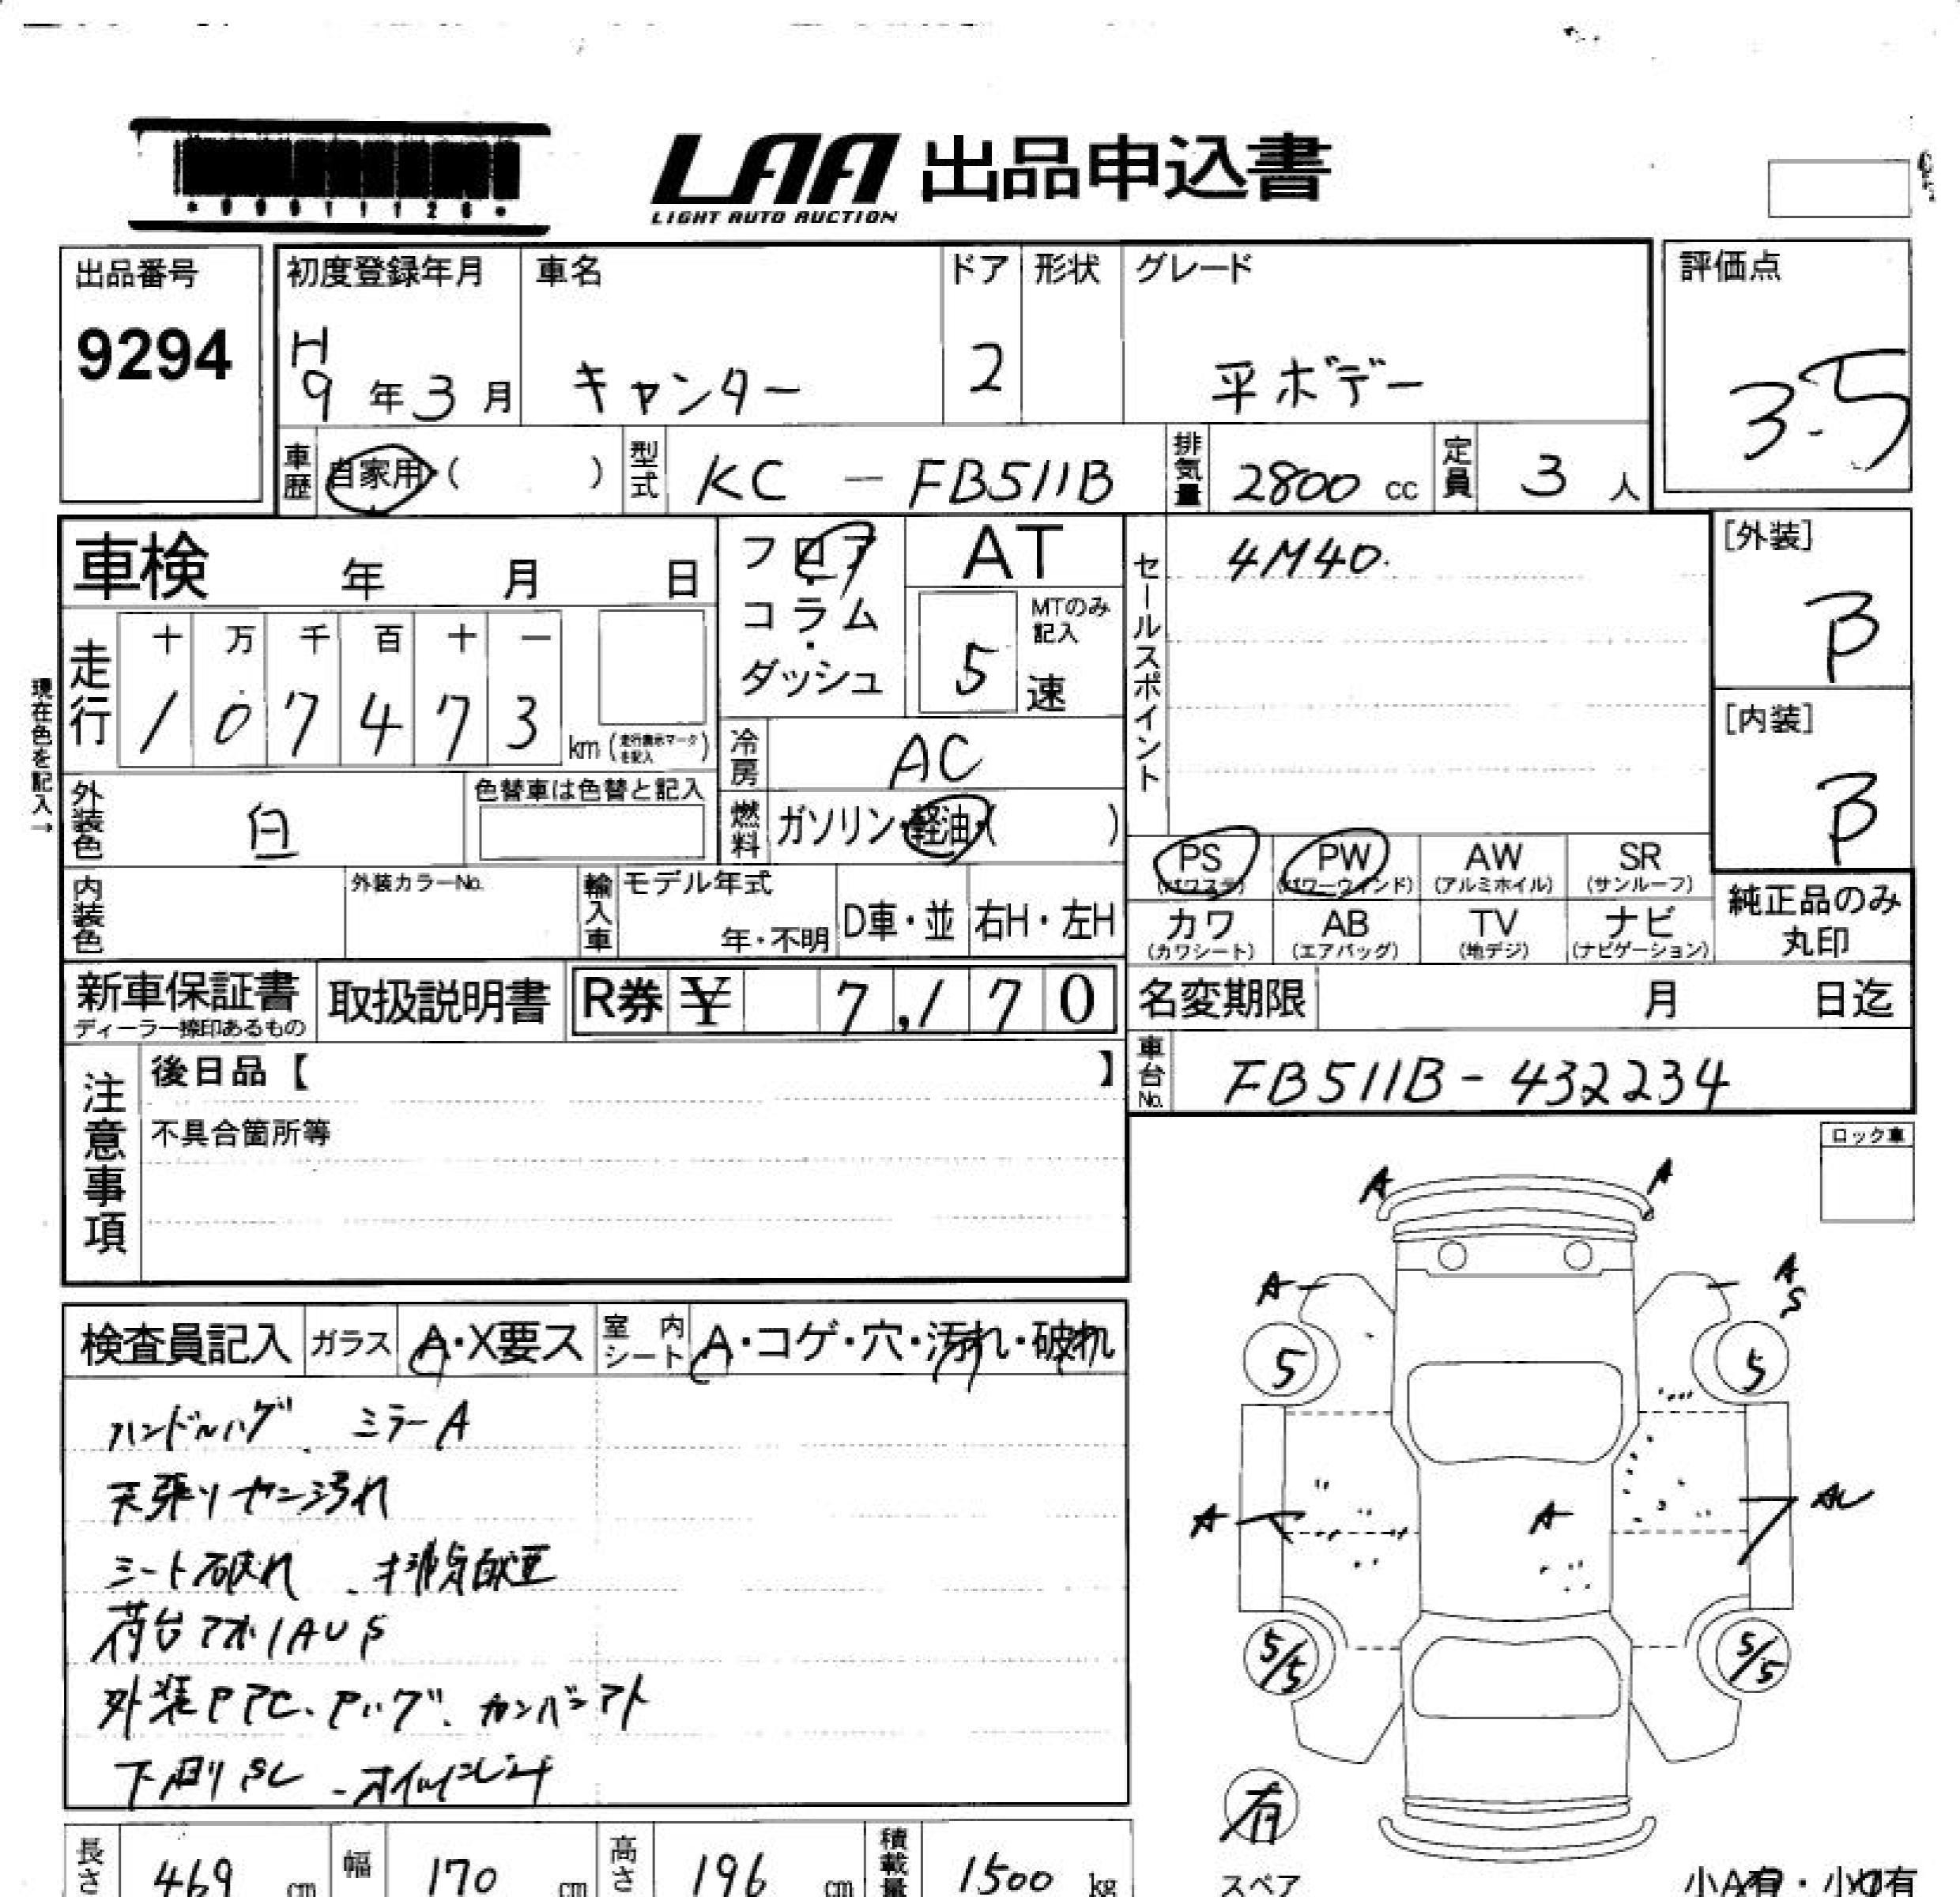 *00011126*
LAA 出品申込書
LIGHT AUTO AUCTION
出品番号
9294
初度登録年月
H
9年3月
車名
キャンター
ドア
2
形状
グレード
平ボデー
評価点
3.5
車歴
自家用・( )
型式
KC-FB511B
排気量
2800 cc
定員
3人
車検 年 月 日
フロア・コラム・ダッシュ
AT
5
MTのみ記入
速
セールスポイント
4M40.
[外装]
B
[内装]
B
現在色を記入→
走行
十 万 千 百 十 一
1 0 7 4 7 3
km (走行表示マークを記入)
冷房
AC
外装色
白
色替車は色替と記入
燃料
ガソリン・軽油・( )
PS
(パワステ)
PW
(パワーウィンド)
AW
(アルミホイル)
SR
(サンルーフ)
カワ
(カワシート)
AB
(エアバッグ)
TV
(地デジ)
ナビ
(ナビゲーション)
純正品のみ
丸印
内装色
外装カラーNo.
輸入車
モデル年式
年・不明
D車・並
右H・左H
新車保証書
ディーラー捺印あるもの
取扱説明書
R券 ¥ 7,170
名変期限 月 日迄
車台No.
FB511B-432234
注意事項
後日品【 】
不具合箇所等
ロック車
検査員記入
ガラス
A・X要ス
室内シート
A・コゲ・穴・汚れ・破れ
ハンドルハゲ ミラーA
天張りヤニ汚れ
シート破れ
荷台アオリAUS
外装
下廻り
A
A
A
A
S
5
5
A
A
AU
5/5
5/5
有
スペア
小A有・小U有
長さ
469 cm
幅
170 cm
高さ
196 cm
積載量
1500 kg